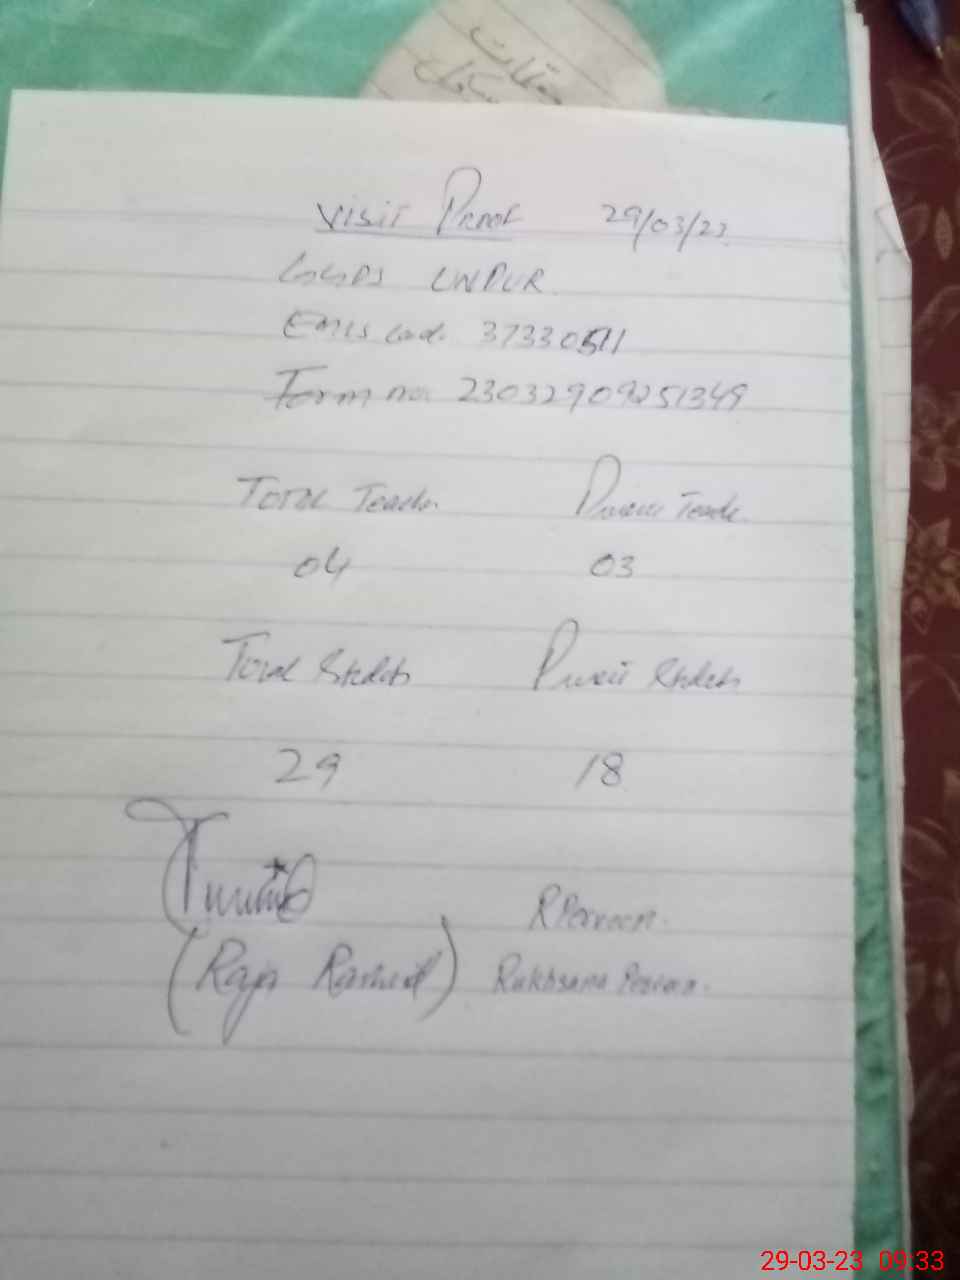 سکول
Visit Proof 29/03/23
GGPS UNPUR
Emis Code 37330511
Form no. 23032909251349
Total Teach. Present Teach.
04 03
Total Stdets Present Stdets
29 18
R Perveen.
(Raja Rashid) Rukhsana Perveen.
29-03-23 09:33